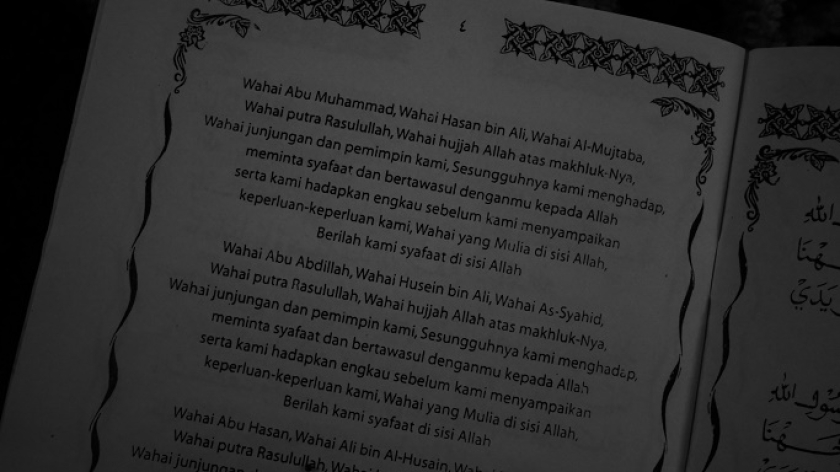 ٤
Wahai Abu Muhammad, Wahai Hasan bin Ali, Wahai Al-Mujtaba,
Wahai putra Rasulullah, Wahai hujjah Allah atas makhluk-Nya,
Wahai junjungan dan pemimpin kami, Sesungguhnya kami menghadap,
meminta syafaat dan bertawasul denganmu kepada Allah
serta kami hadapkan engkau sebelum kami menyampaikan
keperluan-keperluan kami, Wahai yang Mulia di sisi Allah,
Berilah kami syafaat di sisi Allah
Wahai Abu Abdillah, Wahai Husein bin Ali, Wahai As-Syahid,
Wahai putra Rasulullah, Wahai hujjah Allah atas makhluk-Nya,
Wahai junjungan dan pemimpin kami, Sesungguhnya kami menghadap,
meminta syafaat dan bertawasul denganmu kepada Allah
serta kami hadapkan engkau sebelum kami menyampaikan
keperluan-keperluan kami, Wahai yang Mulia di sisi Allah,
Berilah kami syafaat di sisi Allah
Wahai Abu Hasan, Wahai Ali bin Al-Husain, Wahai
Wahai putra Rasulullah, Wahai
Wahai junjungan
الله
الله